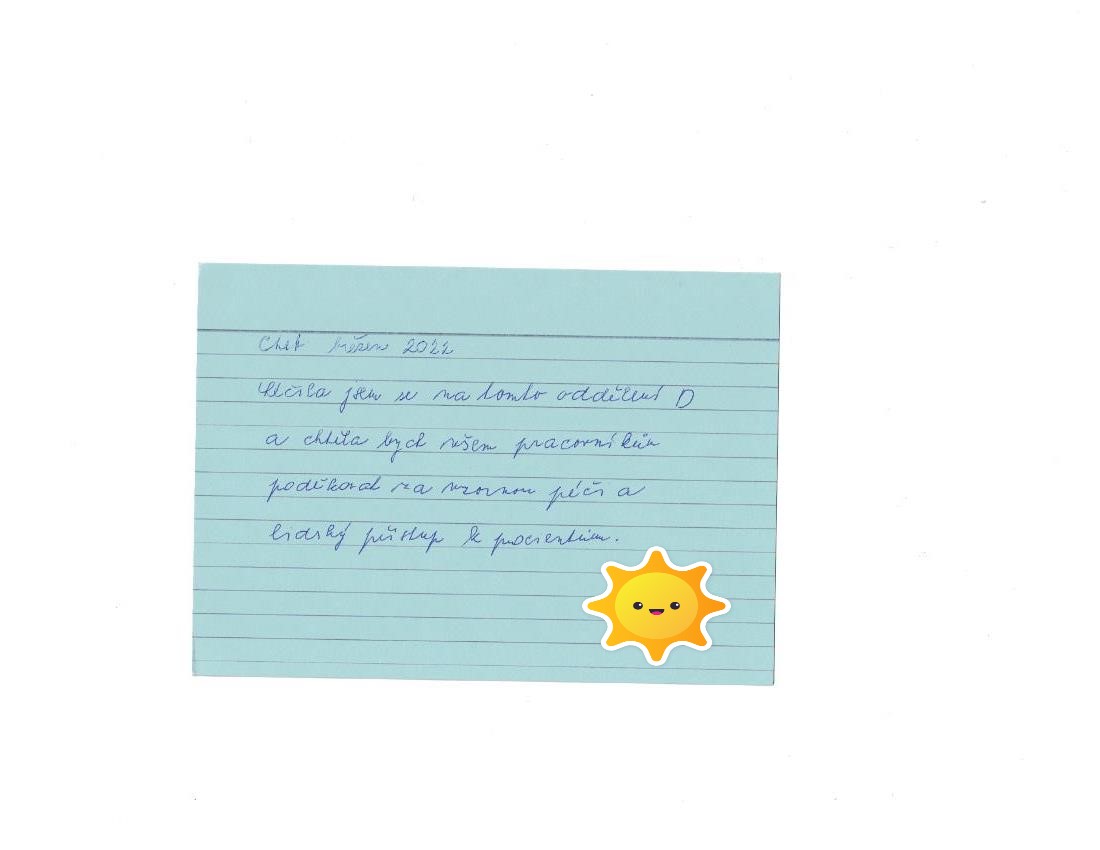 Cheb březen 2022
léčila jsem se na tomto oddělení D
a chtěla bych všem pracovníkům
poděkovat za vzornou péči a
lidský přístup k pacientům.